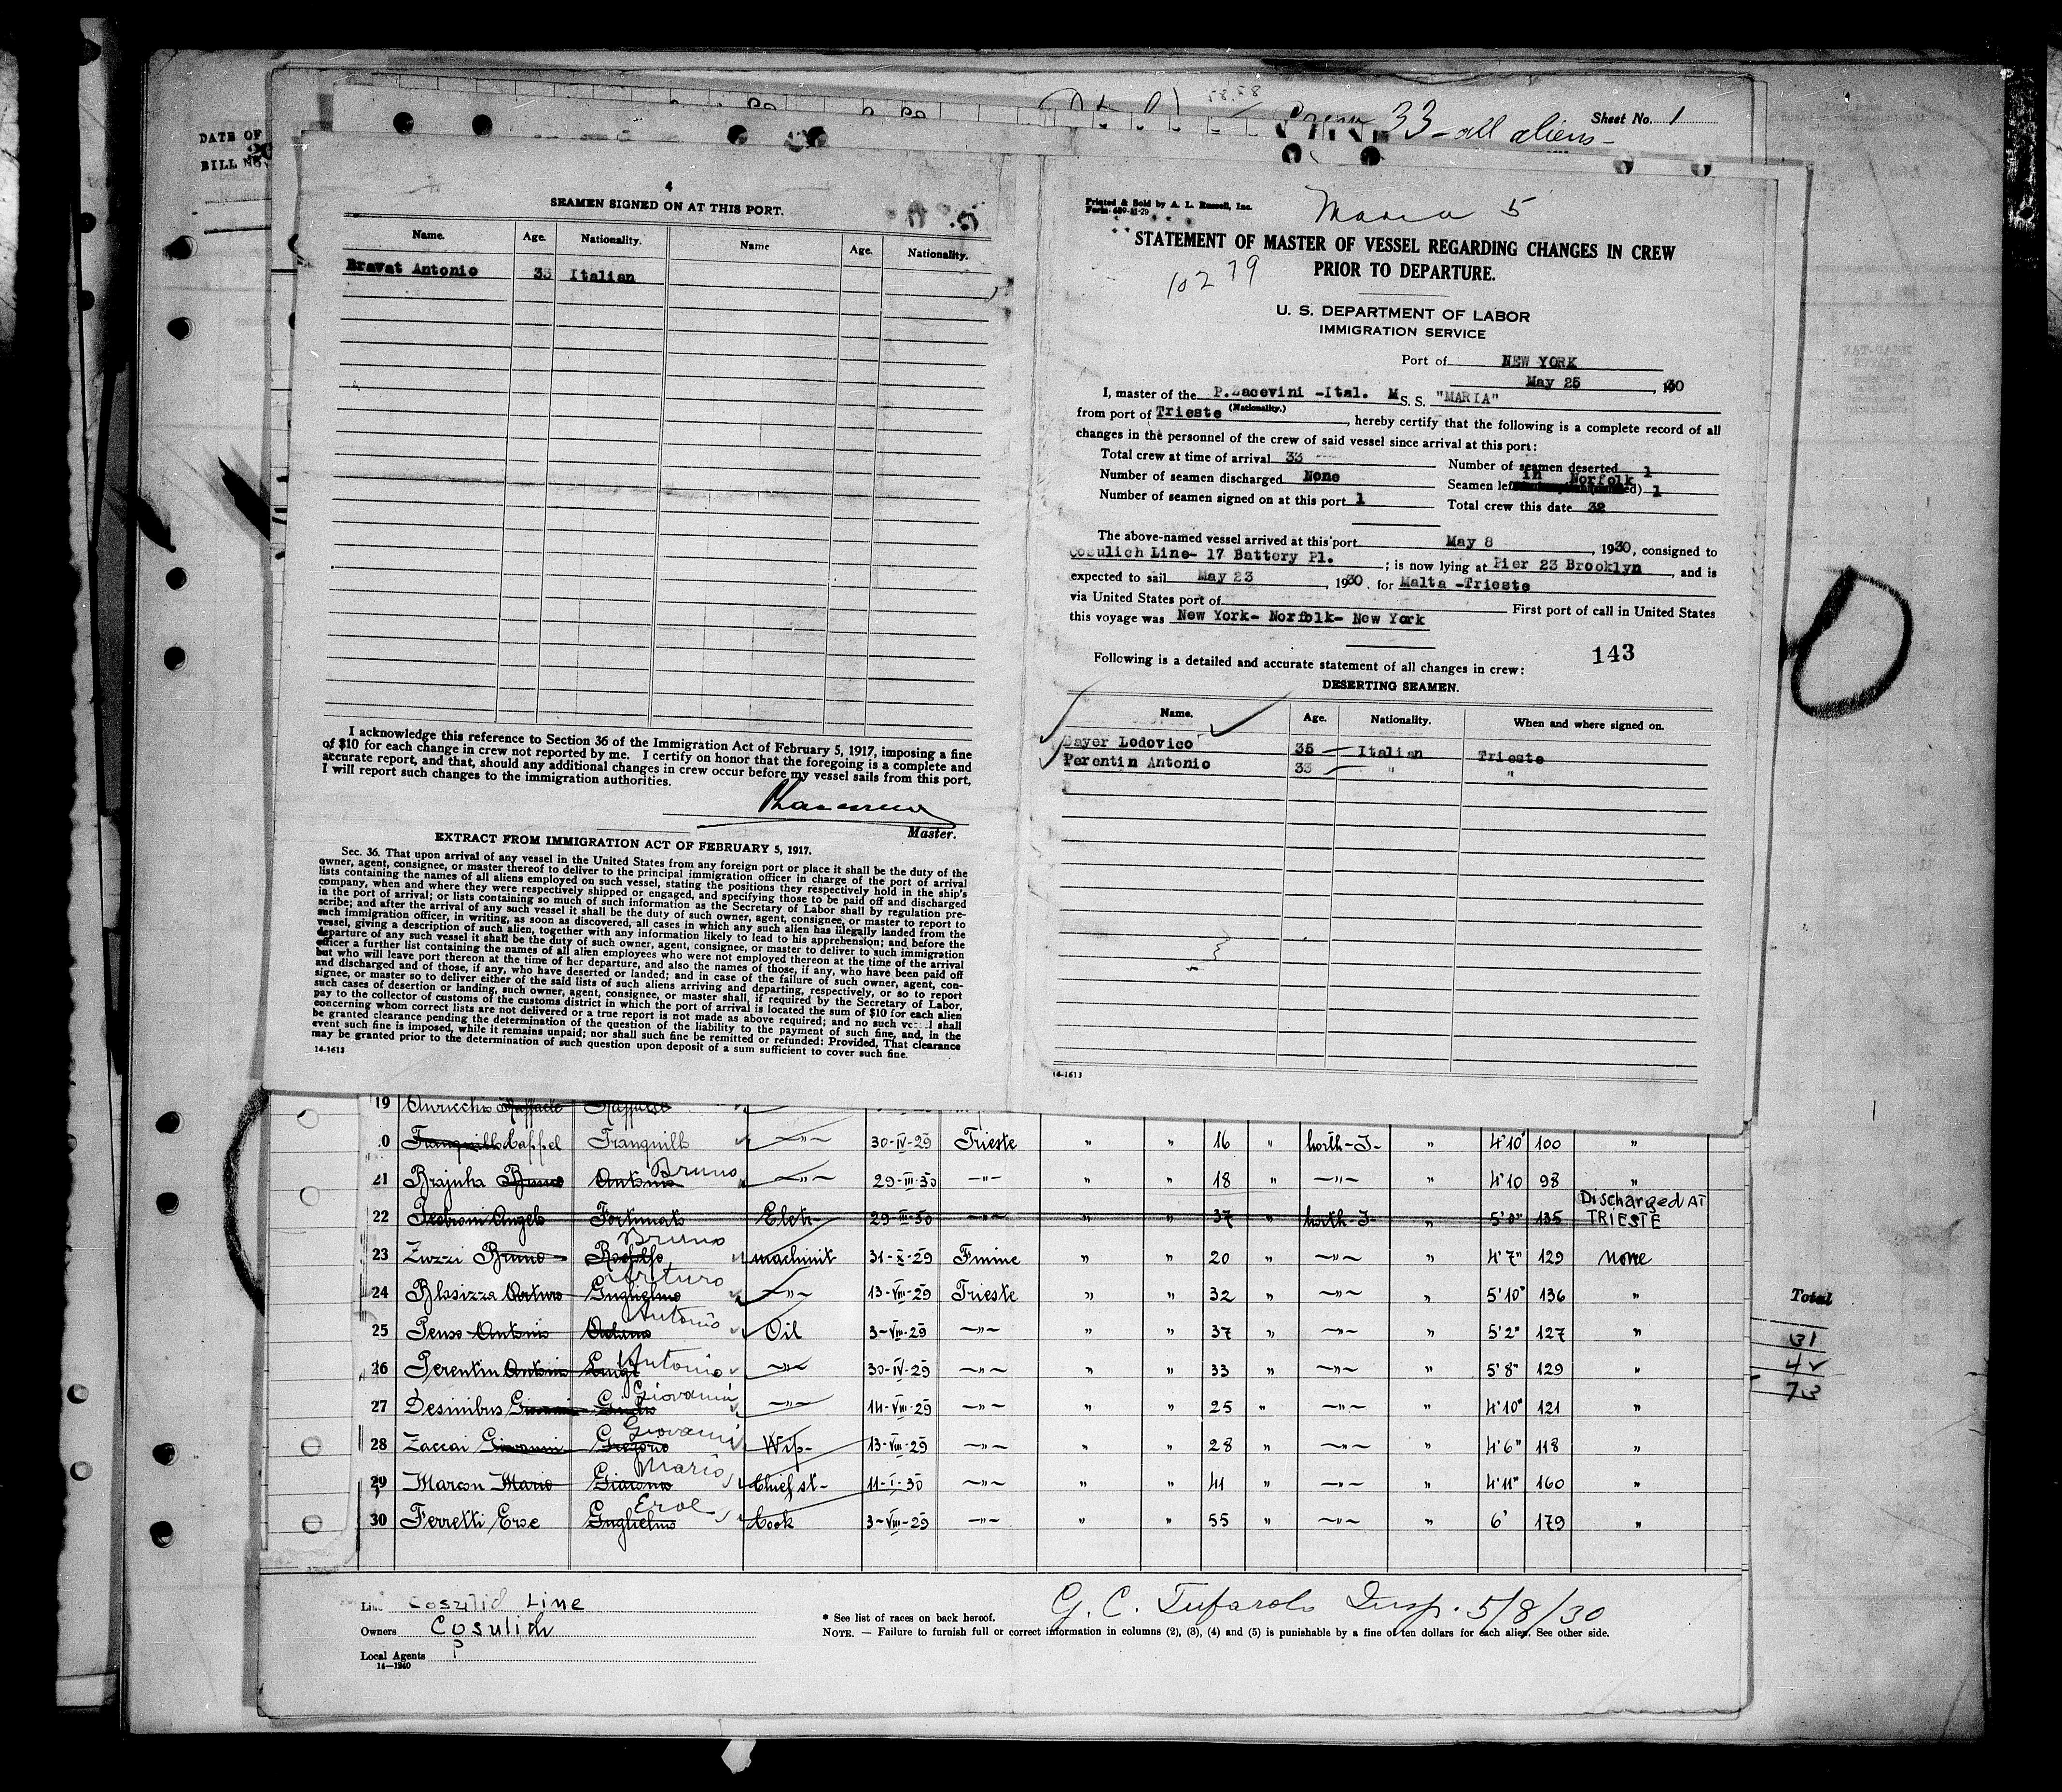 DATE OF
BILL NO.
58.58
Crew 33 - all aliens -
Sheet No. 1
4
SEAMEN SIGNED ON AT THIS PORT.
Name. Age. Nationality. Name Age. Nationality.
Bravat Antonio 33 Italian
I acknowledge this reference to Section 36 of the Immigration Act of February 5, 1917, imposing a fine
of $10 for each change in crew not reported by me. I certify on honor that the foregoing is a complete and
accurate report, and that, should any additional changes in crew occur before my vessel sails from this port,
I will report such changes to the immigration authorities.
Master.
EXTRACT FROM IMMIGRATION ACT OF FEBRUARY 5, 1917.
Sec. 36. That upon arrival of any vessel in the United States from any foreign port or place it shall be the duty of the
owner, agent, consignee, or master thereof to deliver to the principal immigration officer in charge of the port of arrival
lists containing the names of all aliens employed on such vessel, stating the positions they respectively hold in the ship's
company, when and where they were respectively shipped or engaged, and specifying those to be paid off and discharged
in the port of arrival; or lists containing so much of such information as the Secretary of Labor shall by regulation pre-
scribe; and after the arrival of any such vessel it shall be the duty of such owner, agent, consignee, or master to report to
such immigration officer, in writing, as soon as discovered, all cases in which any such alien has illegally landed from the
vessel, giving a description of such alien, together with any information likely to lead to his apprehension; and before the
departure of any such vessel it shall be the duty of such owner, agent, consignee, or master to deliver to such immigration
officer a further list containing the names of all alien employees who were not employed thereon at the time of the arrival
but who will leave port thereon at the time of her departure, and also the names of those, if any, who have been paid off
and discharged and of those, if any, who have deserted or landed; and in case of the failure of such owner, agent, con-
signee, or master so to deliver either of the said lists of such aliens arriving and departing, respectively, or so to report
such cases of desertion or landing, such owner, agent, consignee, or master shall, if required by the Secretary of Labor,
pay to the collector of customs of the customs district in which the port of arrival is located the sum of $10 for each alien
concerning whom correct lists are not delivered or a true report is not made as above required; and no such vessel shall
be granted clearance pending the determination of the question of the liability to the payment of such fine, and, in the
event such fine is imposed, while it remains unpaid; nor shall such fine be remitted or refunded: Provided, That clearance
may be granted prior to the determination of such question upon deposit of a sum sufficient to cover such fine.
14-1613
Printed & Sold by A. L. Russell, Inc.
Form 689-11-29
Maria 5
STATEMENT OF MASTER OF VESSEL REGARDING CHANGES IN CREW
PRIOR TO DEPARTURE.
10279
U. S. DEPARTMENT OF LABOR
IMMIGRATION SERVICE
Port of NEW YORK
May 25, 1930
I, master of the P.Zacevini -Ital. M S. S. "MARIA"
from port of Trieste (Nationality.), hereby certify that the following is a complete record of all
changes in the personnel of the crew of said vessel since arrival at this port:
Total crew at time of arrival 33 Number of seamen deserted 1
Number of seamen discharged None Seamen left in Norfolk 1
Number of seamen signed on at this port 1 Total crew this date 32
The above-named vessel arrived at this port May 8, 1930, consigned to
Cosulich Line- 17 Battery Pl.; is now lying at Pier 23 Brooklyn, and is
expected to sail May 23, 1930. for Malta -Trieste
via United States port of First port of call in United States
this voyage was New York- Norfolk- New York
143
Following is a detailed and accurate statement of all changes in crew:
DESERTING SEAMEN.
Name. Age. Nationality. When and where signed on.
Dayer Lodovico 35 Italian Trieste
Perentin Antonio 33 " "
14-1613
19 Auricchio Raffaele Raffaele
0 Tranquillo Cappel Tranquillo -"- 30-IV-29 Trieste " " 16 " north-I- " 4'10" 100 "
21 Brajnha Bruno Antonio Bruno -"- 29-III-30 -"- " " 18 " -"- " 4'10 98 "
22 Pedroni Angelo Fortunato Eletr- 29-III-30 -"- " " 37 " north-I- " 5'0" 135 Discharged AT TRIESTE
23 Zuzzi Bruno Rodolfo Bruno machinit 31-X-29 Fiume " " 20 " -"- " 4'7" 129 None
24 Blasizza Arturo Guglielmo Arturo -"- 13-VIII-29 Trieste " " 32 " -"- " 5'10" 136 "
25 Penso Antonio Antonio Oil 3-VIII-29 -"- " " 37 " -"- " 5'2" 127 "
26 Perentin Antonio Luigi Antonio -"- 30-IV-29 -"- " " 33 " -"- " 5'8" 129 "
27 Desinibus Giovanni Giovanni -"- 14-VIII-29 -"- " " 25 " -"- " 4'10" 121 "
28 Zaccai Giovanni Gregorio Giovanni Wip- 13-VIII-29 -"- " " 28 " -"- " 4'6" 118 "
29 Marcon Mario Giacomo Mario Chief st- 11-I-30 -"- " " 41 " -"- " 4'11" 160 "
30 Ferretti Eroe Guglielmo Eroe Cook 3-VIII-29 -"- " " 55 " -"- " 6' 179 "
Total
31
42
73
Line Cosulich Line
Owners Cosulich
Local Agents
14-1240
* See list of races on back hereof.
G. C. Tufarolo Insp. 5/8/30
NOTE. — Failure to furnish full or correct information in columns (2), (3), (4) and (5) is punishable by a fine of ten dollars for each alien. See other side.